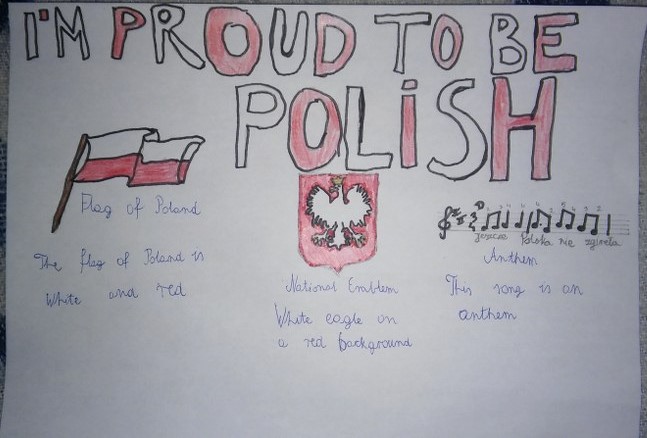 I'M PROUD TO BE
POLISH
Flag of Poland
The flag of Poland is
White and red
National Emblem
White eagle on
a red background
Jeszcze Polska nie zgineła
Anthem
This song is an
anthem